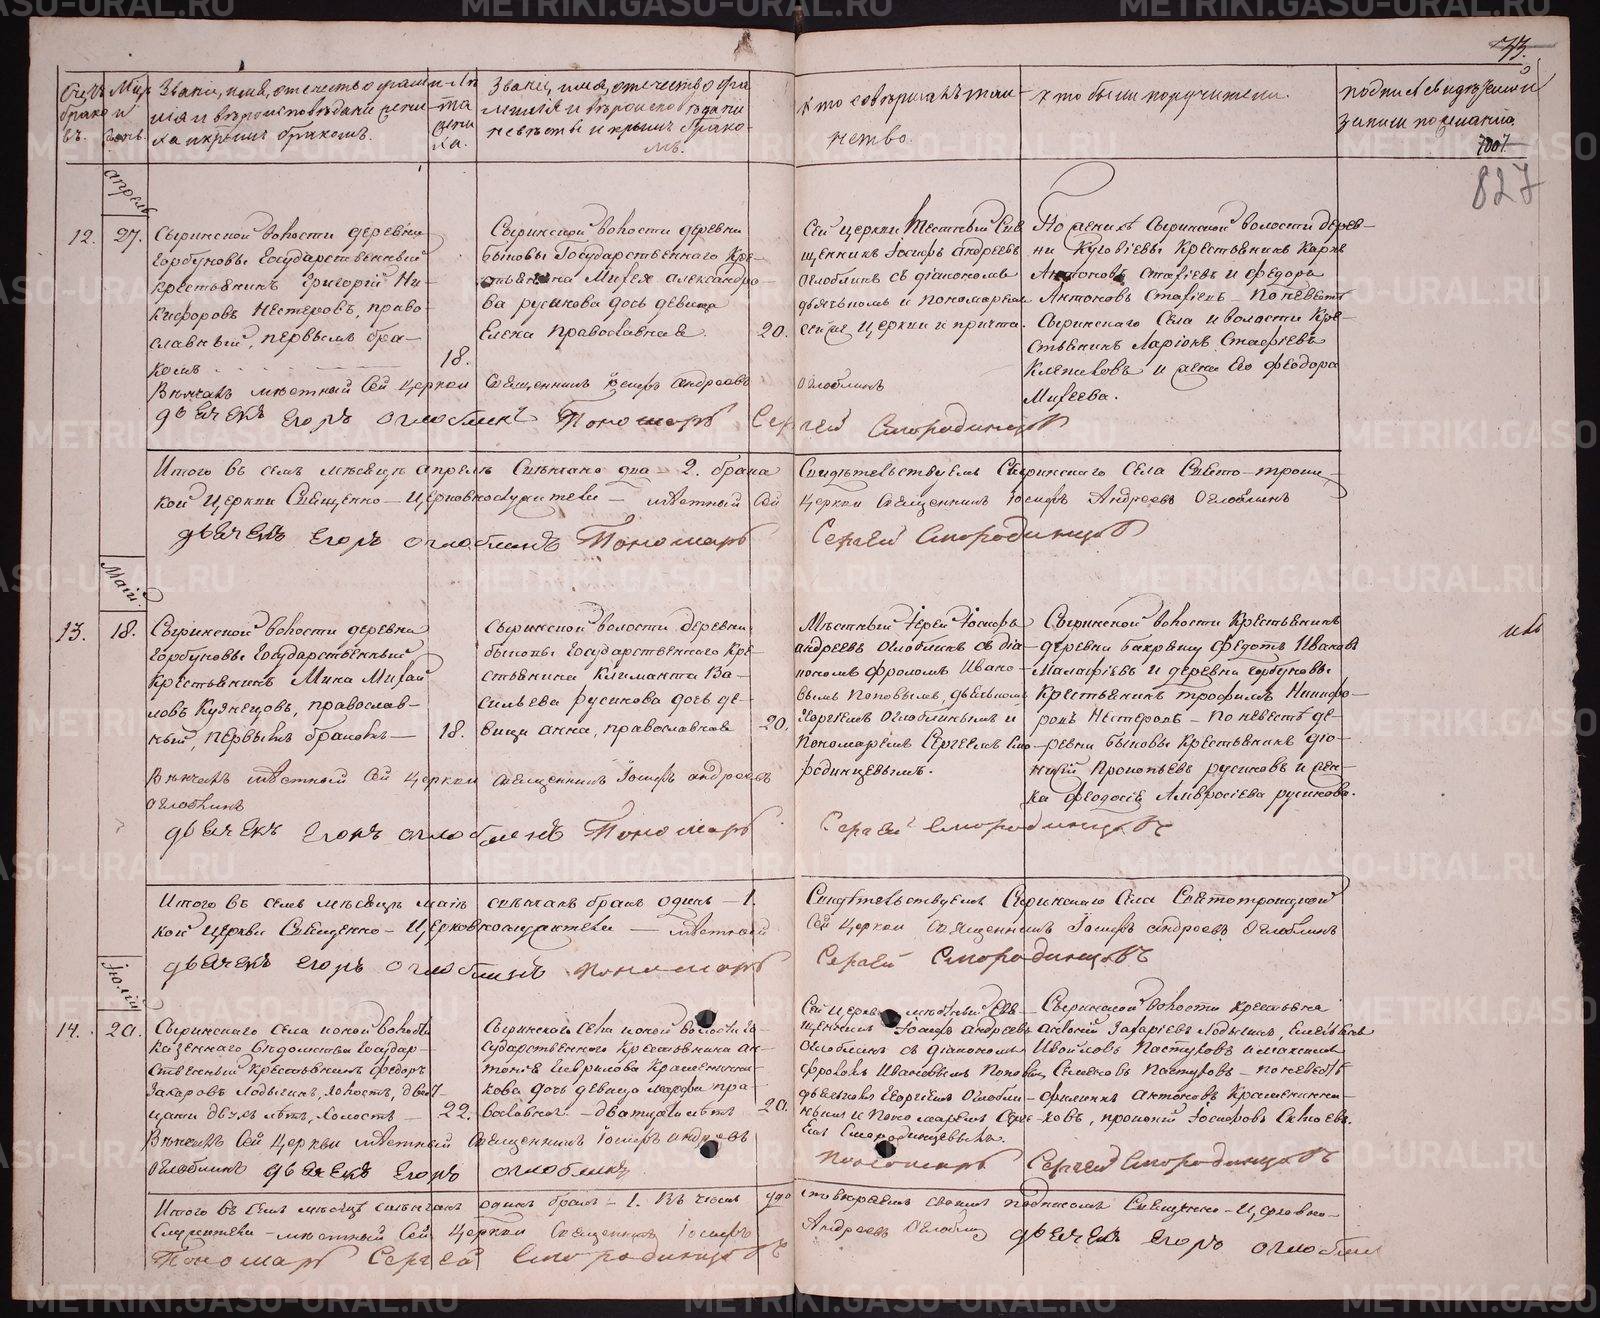 73.
Счетъ браковъ.
Мѣс. и день.
Званіе, имя, отечество, фамилія и вѣроисповѣданіе жениха и коимъ бракомъ.
Лѣта жениха.
Званіе, имя, отечество, фамилія и вѣроисповѣданіе невѣсты и коимъ бракомъ.
Кто совершалъ таинство.
Кто были поручители.
Подпись свидѣтелей записи по желанію.
827
Апрель
12. 27.
Сыринской волости деревни
Горбуновы Государственный
крестьянинъ Григорій Ни-
кифоровъ Нестеровъ, право-
славный, первымъ бра-
комъ 18.
Сыринской волости деревни
Быковы Государственнаго Кре-
стьянина Михея Александро-
ва русинова дочь девица
Елена православная. 20.
Сей церкви местный Свя-
щенникъ Іосифъ Андреевъ
Оглоблинъ съ діакономъ
дьячкомъ и пономаремъ
сей же церкви и причта.
По женихѣ Сыринской волости дерев-
ни Крестьянинъ Карпъ
Антоновъ и Федоръ
Антоновъ — По невестѣ
Сыринскаго Села и волости Кре-
стьянинъ Ларіонъ
и жена его Феодора
Михеева.
Вѣнчалъ мѣстный Сей церкви Священникъ Іосифъ Андреевъ Оглоблинъ
дьячекъ Егоръ Оглоблинъ Пономарь Сергей Смородинцовъ
Итого въ семъ мѣсяцѣ Апрелѣ Свѣнчано два — 2. брака Свидѣтельствуемъ Сыринскаго Села Свято-троиц-
кой Церкви Священно-Церковнослужители — мѣстный Сей Церкви Священникъ Іосифъ Андреевъ Оглоблинъ
дьячекъ Егоръ Оглоблинъ Пономарь Сергей Смородинцовъ
Маій
13. 18.
Сыринской волости деревни
Горбуновы Государственный
Крестьянинъ Мина Михай-
ловъ Кузнецовъ, православ-
ный, первымъ бракомъ — 18.
Сыринской волости деревни
быковы Государственного Кре-
стьянина Климанта Ва-
сильева русинова дочь де-
вица Анна, православная 20.
Мѣстный Іерей Іосифъ
Андреевъ Оглоблинъ съ діа-
кономъ Фроломъ Ивано-
вымъ Поповымъ, дьячкомъ
Георгіемъ Оглоблинымъ и
Пономаремъ Сергеемъ Смо-
родинцевымъ.
Сыринской волости Крестьянинъ
деревни Федотъ Ивановъ
и деревни Горбуновы
Крестьянинъ Трофимъ Никифо-
ровъ Нестеровъ — По невестѣ де-
ревни Быковы Крестьянинъ Діо-
нисій Прокопьевъ русиновъ и
Феодосія Амвросіева русинова.
Вѣнчалъ мѣстный Сей Церкви Священникъ Іосифъ Андреевъ
Оглоблинъ
дьячекъ Егоръ Оглоблинъ Пономарь Сергей Смородинцовъ
Итого въ семъ мѣсяцѣ маіѣ свѣнчанъ бракъ одинъ — 1. Свидѣтельствуемъ Сыринскаго Села Святотроиц-
кой Церкви Священно-Церковнослужители — мѣстный Сей Церкви Священникъ Іосифъ Андреевъ Оглоблинъ
дьячекъ Егоръ Оглоблинъ Пономарь Сергей Смородинцовъ
Іюлій
14. 20.
Сыринскаго села и оной волости
казеннаго ведомства Государ-
ственный крестьянинъ Федоръ
Захаровъ Ладыгинъ, холостъ, двад-
цати двухъ лѣтъ, холостъ — 22.
Сыринского Села и оной волости Го-
сударственного Крестьянина Ан-
тона Гаврилова Крашенинни-
кова дочь девица Марфа пра-
вославная — двадцати лѣтъ 20.
Сей церкви мѣстный Свя-
щенникъ Іосифъ Андреевъ
Оглоблинъ съ діакономъ
Фроломъ Ивановымъ Поповымъ
дьячкомъ Георгіемъ Оглобли-
нымъ и Пономаремъ Серге-
емъ Смородинцевымъ.
Сыринской волости крестьяна
Захаріевъ Ладыгинъ,
Пастуховъ и Максимъ
Семеновъ Пастуховъ — по невестѣ
Антоновъ Крашенинни-
ковъ, Прокопій Іосифовъ
Вѣнчалъ Сей Церкви мѣстный Священникъ Іосифъ Андреевъ
Оглоблинъ дьячекъ Егоръ Оглоблинъ Пономарь Сергей Смородинцовъ
Итого въ семъ мѣсяцѣ свѣнчанъ одинъ бракъ — 1. Въ чемъ удостовѣряемъ своимъ подписомъ Священно-Церковно-
служители — мѣстный Сей Церкви Священникъ Іосифъ Андреевъ Оглоблинъ дьячекъ Егоръ Оглоблинъ
Пономарь Сергей Смородинцовъ
METRIKI.GASO-URAL.RU